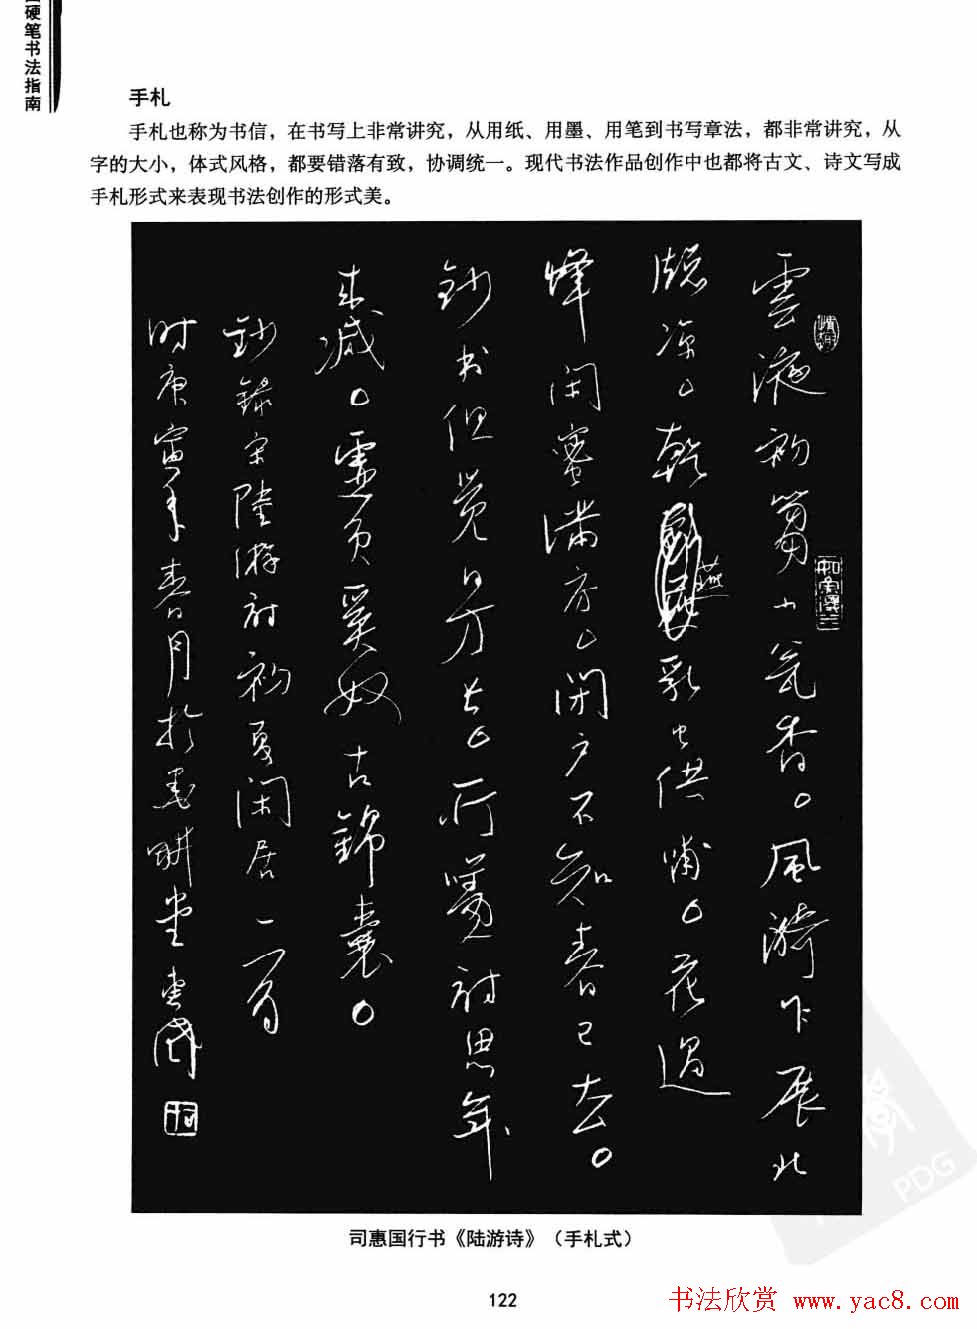 硬笔书法指南
手札
手札也称为书信，在书写上非常讲究，从用纸、用墨、用笔到书写章法，都非常讲究，从
字的大小，体式风格，都要错落有致，协调统一。现代书法作品创作中也都将古文、诗文写成
手札形式来表现书法创作的形式美。
雲液初篘小瓮香。風漪乍展北
牕凉。乾燕乳虫供哺。花過
蜂闲蜜满房。闭户不知春已去。
钞书但觉日方长。所诗思年
来减。虚负奚奴古錦囊。
钞錄宋陸游诗初夏闲居一首
时庚寅年春月於墨耕堂惠國
司惠国行书《陆游诗》（手札式）
122
书法欣赏 www.yac8.com
PDG